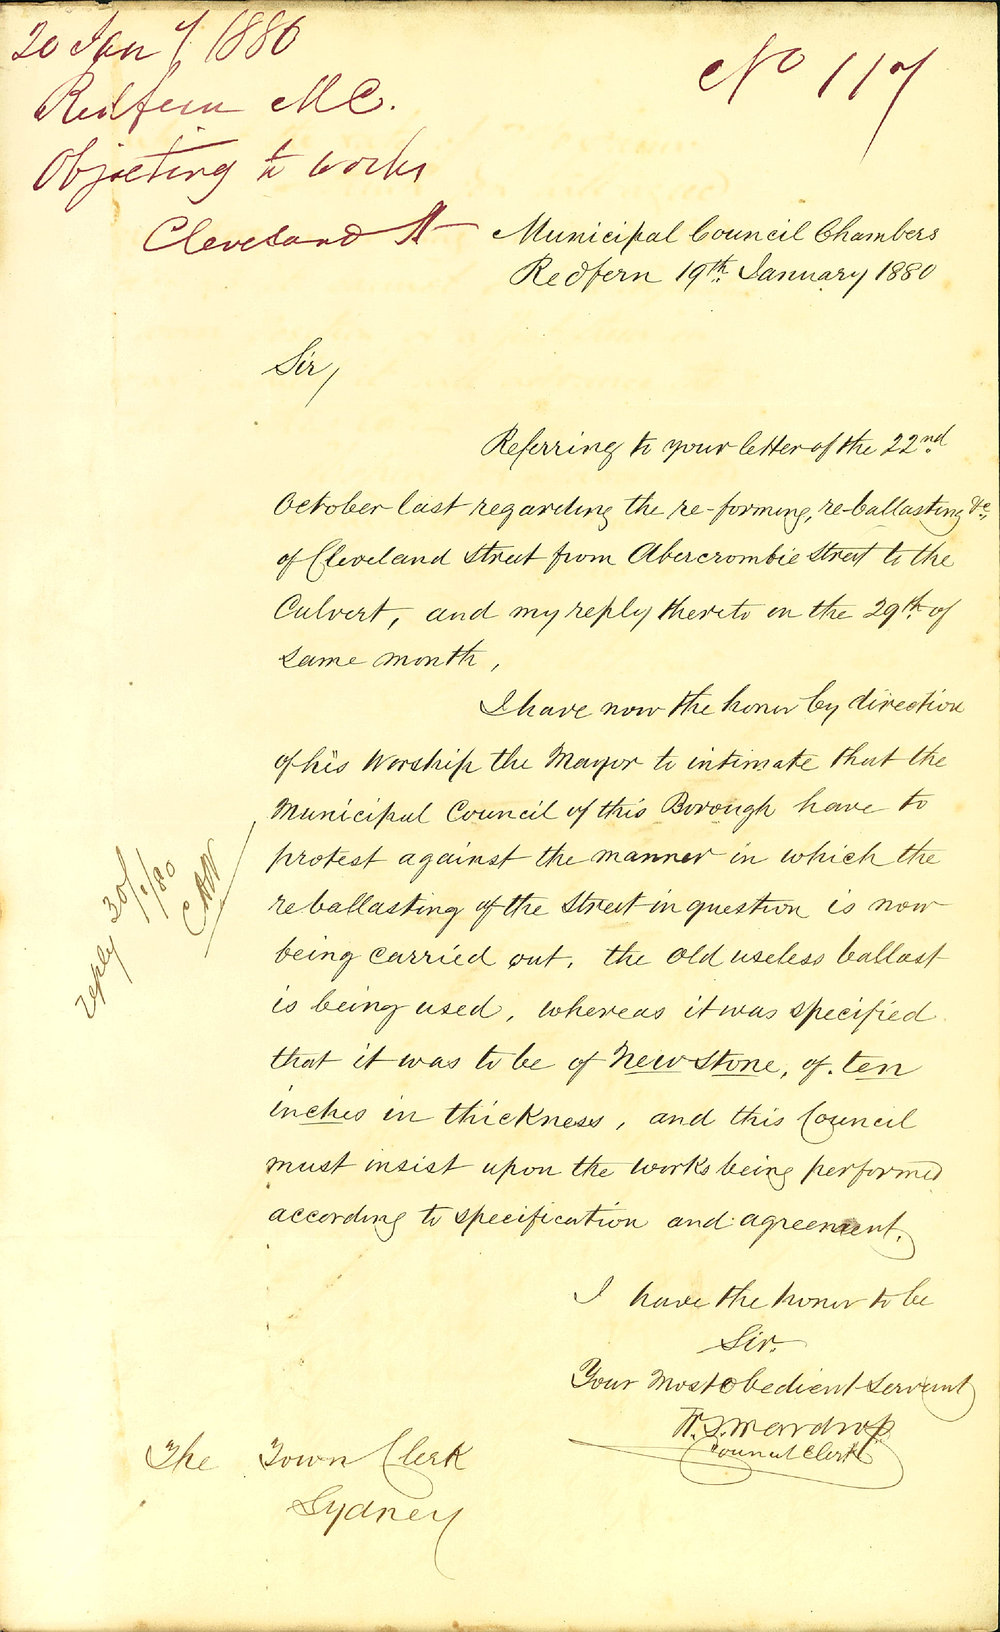 20 Jany 1880
Redfern M C.
Objecting to works
Cleveland St
No 117
Municipal Council Chambers
Redfern 19th January 1880
Sir,
Referring to your letter of the 22nd
October last regarding the re-forming, re-ballasting &c,
of Cleveland Street from Abercrombie Street to the
Culvert, and my reply thereto on the 29th of
same month,
I have now the honor by direction
of his Worship the Mayor to intimate that the
Municipal Council of this Borough have to
protest against the manner in which the
reballasting of the Street in question is now
being carried out. the old useless ballast
is being used, whereas it was specified
that it was to be of New Stone, of ten
inches in thickness, and this Council
must insist upon the works being performed
according to specification and agreement.
reply 30/1/80
I have the honor to be
Sir.
Your Most obedient Servant
Wardrop
Council Clerk
The Town Clerk
Sydney